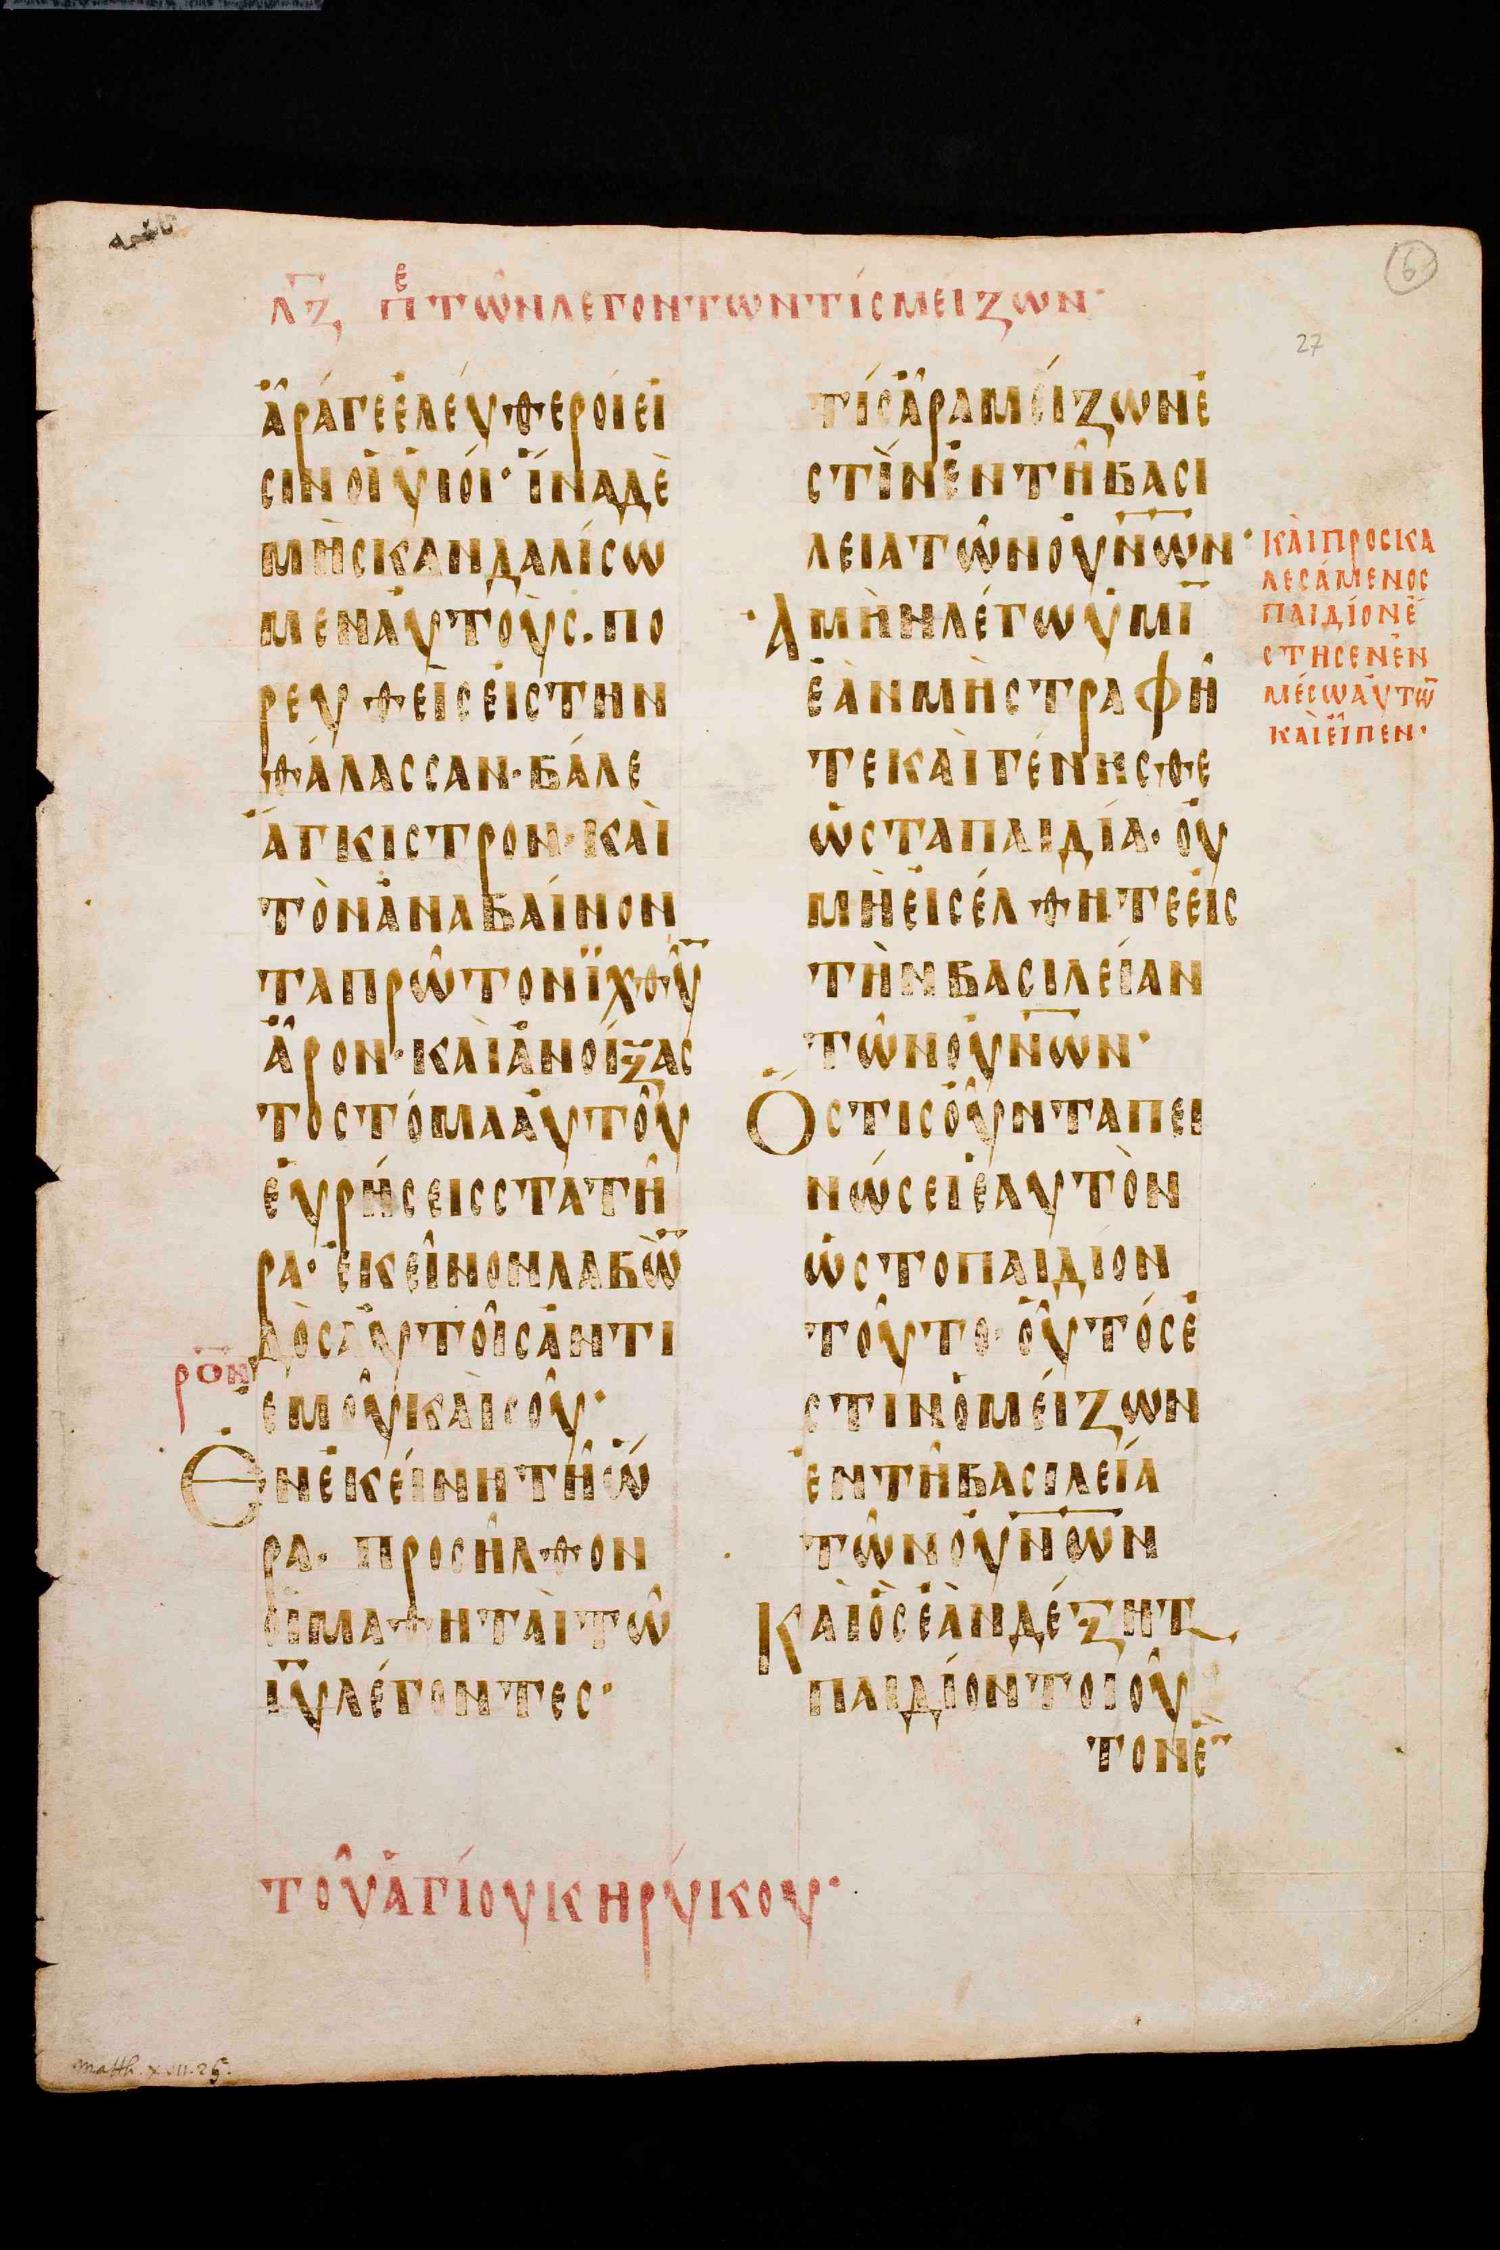 ΛΖ ΠΕ ΤῶΝΛΕΓΟΝΤωΝΤΊCΜΕΙΖωΝ·
6
27
ἌΡΆΓΕἘΛΕΎΘΕΡΟΊΕἰ
CΙΝΟἱΥἱΌΙ· ἵΝΑΔῈ
ΜῊCΚΑΝΔΑΛΊCω
ΜΕΝΑὐΤΟῪC. ΠΟ
ΡΕΥΘΕῖCΕἰCΤΗΝ
ΘΆΛΑCCΑΝ· ΒΆΛΕ
ἌΓΚΙCΤΡΟΝ· ΚΑῚ
ΤῸΝἈΝΑΒΑΊΝΟΝ
ΤΑΠΡῶΤΟΝΪΧΘΥ̅
ἎΡΟΝ· ΚΑῚἈΝΟΊΞΑC
ΤΟCΤΌΜΑΑὐΤΟῦ
ΕὑΡΉCΕΙCCΤΑΤῆ
ΡΑ· ἘΚΕῖΝΟΝΛΑΒῼ̅
ΔῸCΑὐΤΟῖCἈΝΤΙ
ΕΜΟῦΚΑῚCΟῦ·
ΡΟΝ
ἘΝἘΚΕΊΝΗΤῆὭ
ΡΑ· ΠΡΟCῆΛΘΟΝ
ΟἱΜΑΘΗΤΑῚΤῶ
Ι̅Υ̅ΛΈΓΟΝΤΕC·
ΤΊCἌΡΑΜΕΊΖωΝἘ
CΤῚΝἘΝΤῆΒΑCΙ
ΛΕΙΑΤῶΝΟὐΝ̅ω̅Ν·
ἈΜῊΝΛΈΓωὑΜΙ̅
ἘᾺΝΜῊCΤΡΑΦῆ
ΤΕΚΑῚΓΈΝΗCΘΕ
ὡCΤΑΠΑΙΔΊΑ· Οὐ
ΜῊΕἰCΈΛΘΗΤΕΕἰC
ΤῊΝΒΑCΙΛΕΊΑΝ
ΤῶΝΟὐΝ̅ω̅Ν·
ὍCΤΙCΟὖΝΤΑΠΕΙ
ΝΏCΕΙἑΑΥΤῸΝ
ὡCΤΟΠΑΙΔΙΟΝ
ΤΟῦΤΟ· ΟὗΤΌCἘ
CΤΙΝὁΜΕΊΖωΝ
ἘΝΤῆΒΑCΙΛΕΊΑ
ΤῶΝΟὐΝ̅ω̅Ν
ΚΑῚὋCἘᾺΝΔΈΞΗΤ
ΠΑΙΔΊΟΝΤΟΙΟῦ
ΤΟΝἘ̅
ΚΑῚΠΡΟCΚΑ
ΛΕCΆΜΕΝΟC
ΠΑΙΔΊΟΝἜ
CΤΗCΕΝἘΝ
ΜΈCωΑὐΤω̅
ΚΑῚΕἶΠΕΝ·
ΤΟῦἉΓΊΟΥΚΗΡΎΚΟΥ·
Matth. xvii. 26.